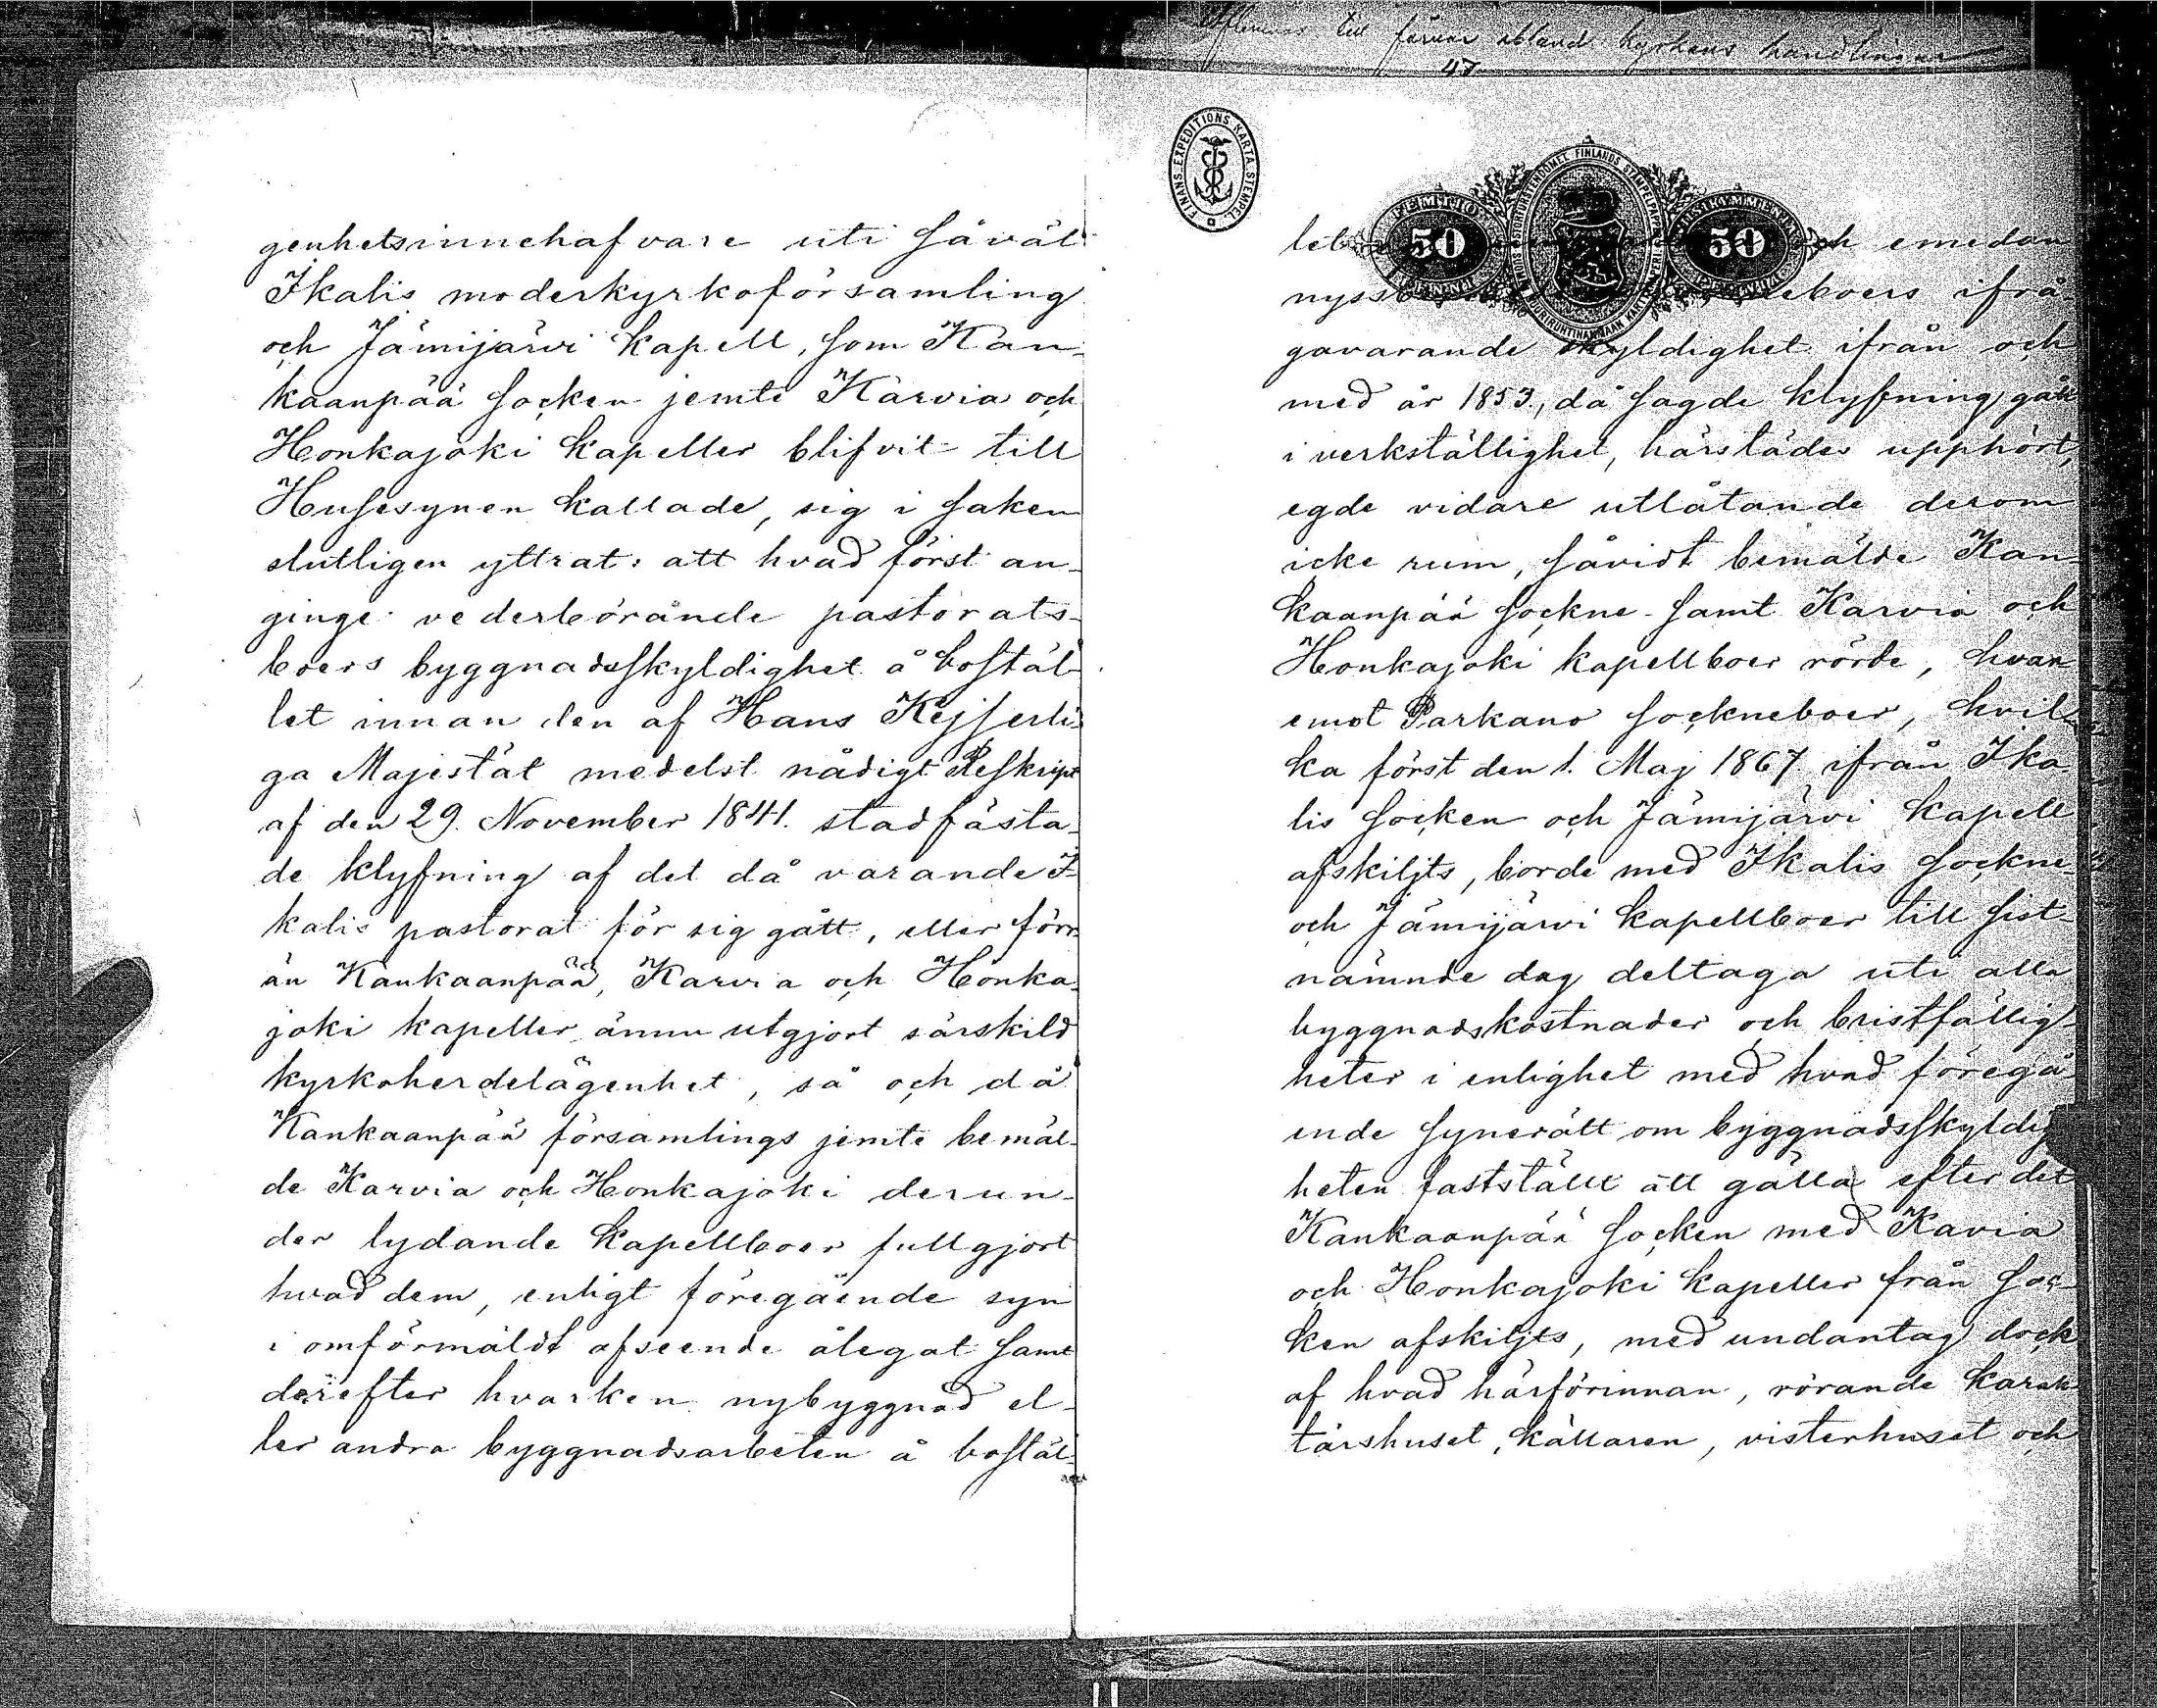 genhetsinnehafvare uti såväl
Ikalis moderkyrkoförsamling
och Jämijärvi kapell, som Kan-
kaanpää socken jemte Karvia och
Honkajoki kapeller blifvit till
Husesynen kallade, sig i saken
slutligen yttrat: att hvad först an-
ginge vederbörande pastorats-
boers byggnadsskyldighet å bostäl-
let innan den af Hans Kejserli-
ga Majestät medelst nådigt Reskript
af den 29. November 1841. stadfästa-
de klyfning af det då varande I-
kalis pastorat för sig gått, eller förr
än Kankaanpää, Karvia och Honka-
joki kapeller ännu utgjort särskild
kyrkoherdelägenhet, så och då
Kankaanpää församlings jemte bemäl-
de Karvia och Honkajoki derun-
der lydande kapellboer fullgjort
hvad dem, enligt föregående syn
i omförmäldt afseende ålegat samt
derefter hvarken nybyggnad el-
ler andra byggnadsarbeten å bostäl-
till förvar ibland kyrkans handlingar
47
FINANS EXPEDITIONS KARTA STEMPEL
50 50
let och emedan
neboers ifrå-
gavarande skyldighet ifrån och
med år 1853, då sagde klyfning gått
i verkställighet, härstädes upphört,
egde vidare utlåtande derom
icke rum, såvidt bemälde Kan-
kaanpää sockne- samt Karvia och
Honkajoki kapellboer rörde, hvar
emot Parkano sockneboer, hvil-
ka först den 1. Maj 1867 ifrån Ika-
lis socken och Jämijärvi kapell
afskiljts, borde med Ikalis sockne-
och Jämijärvi kapellboer till sist-
nämnde dag deltaga uti alla
byggnadskostnader och bristfällig-
heter i enlighet med hvad föregå-
ende synerätt om byggnadsskyldig
heten fastställt att gälla efter det
Kankaanpää socken med Kavia
och Honkajoki kapeller från soc-
ken afskiljts, med undantag dock
af hvad härförinnan, rörande karak
tärshuset, källaren, visterhuset och